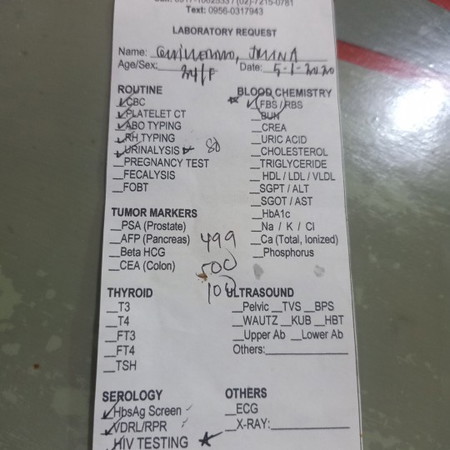 Text: 0956-0317943
LABORATORY REQUEST
Name: Guillermo,
Age/Sex: 24/F Date: 5-1-2020
ROUTINE
CBC
PLATELET CT
ABO TYPING
RH TYPING
URINALYSIS 80
__PREGNANCY TEST
__FECALYSIS
__FOBT
BLOOD CHEMISTRY
FBS / RBS
BUN
__CREA
__URIC ACID
__CHOLESTEROL
__TRIGLYCERIDE
__HDL / LDL / VLDL
__SGPT / ALT
__SGOT / AST
__HbA1c
__Na / K / Cl
__Ca (Total, Ionized)
__Phosphorus
TUMOR MARKERS
__PSA (Prostate)
__AFP (Pancreas)
__Beta HCG
__CEA (Colon)
499
500
100
THYROID
__T3
__T4
__FT3
__FT4
__TSH
ULTRASOUND
__Pelvic __TVS __BPS
__WAUTZ __KUB __HBT
__Upper Ab __Lower Ab
Others:
SEROLOGY
HbsAg Screen
VDRL/RPR
HIV TESTING
OTHERS
__ECG
__X-RAY: